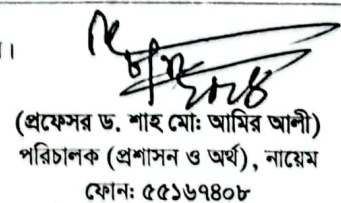 ।
(প্রফেসর ড. শাহ মোঃ আমির আলী)
পরিচালক (প্রশাসন ও অর্থ), নায়েম
ফোন: ৫৫১৬৭৪০৮